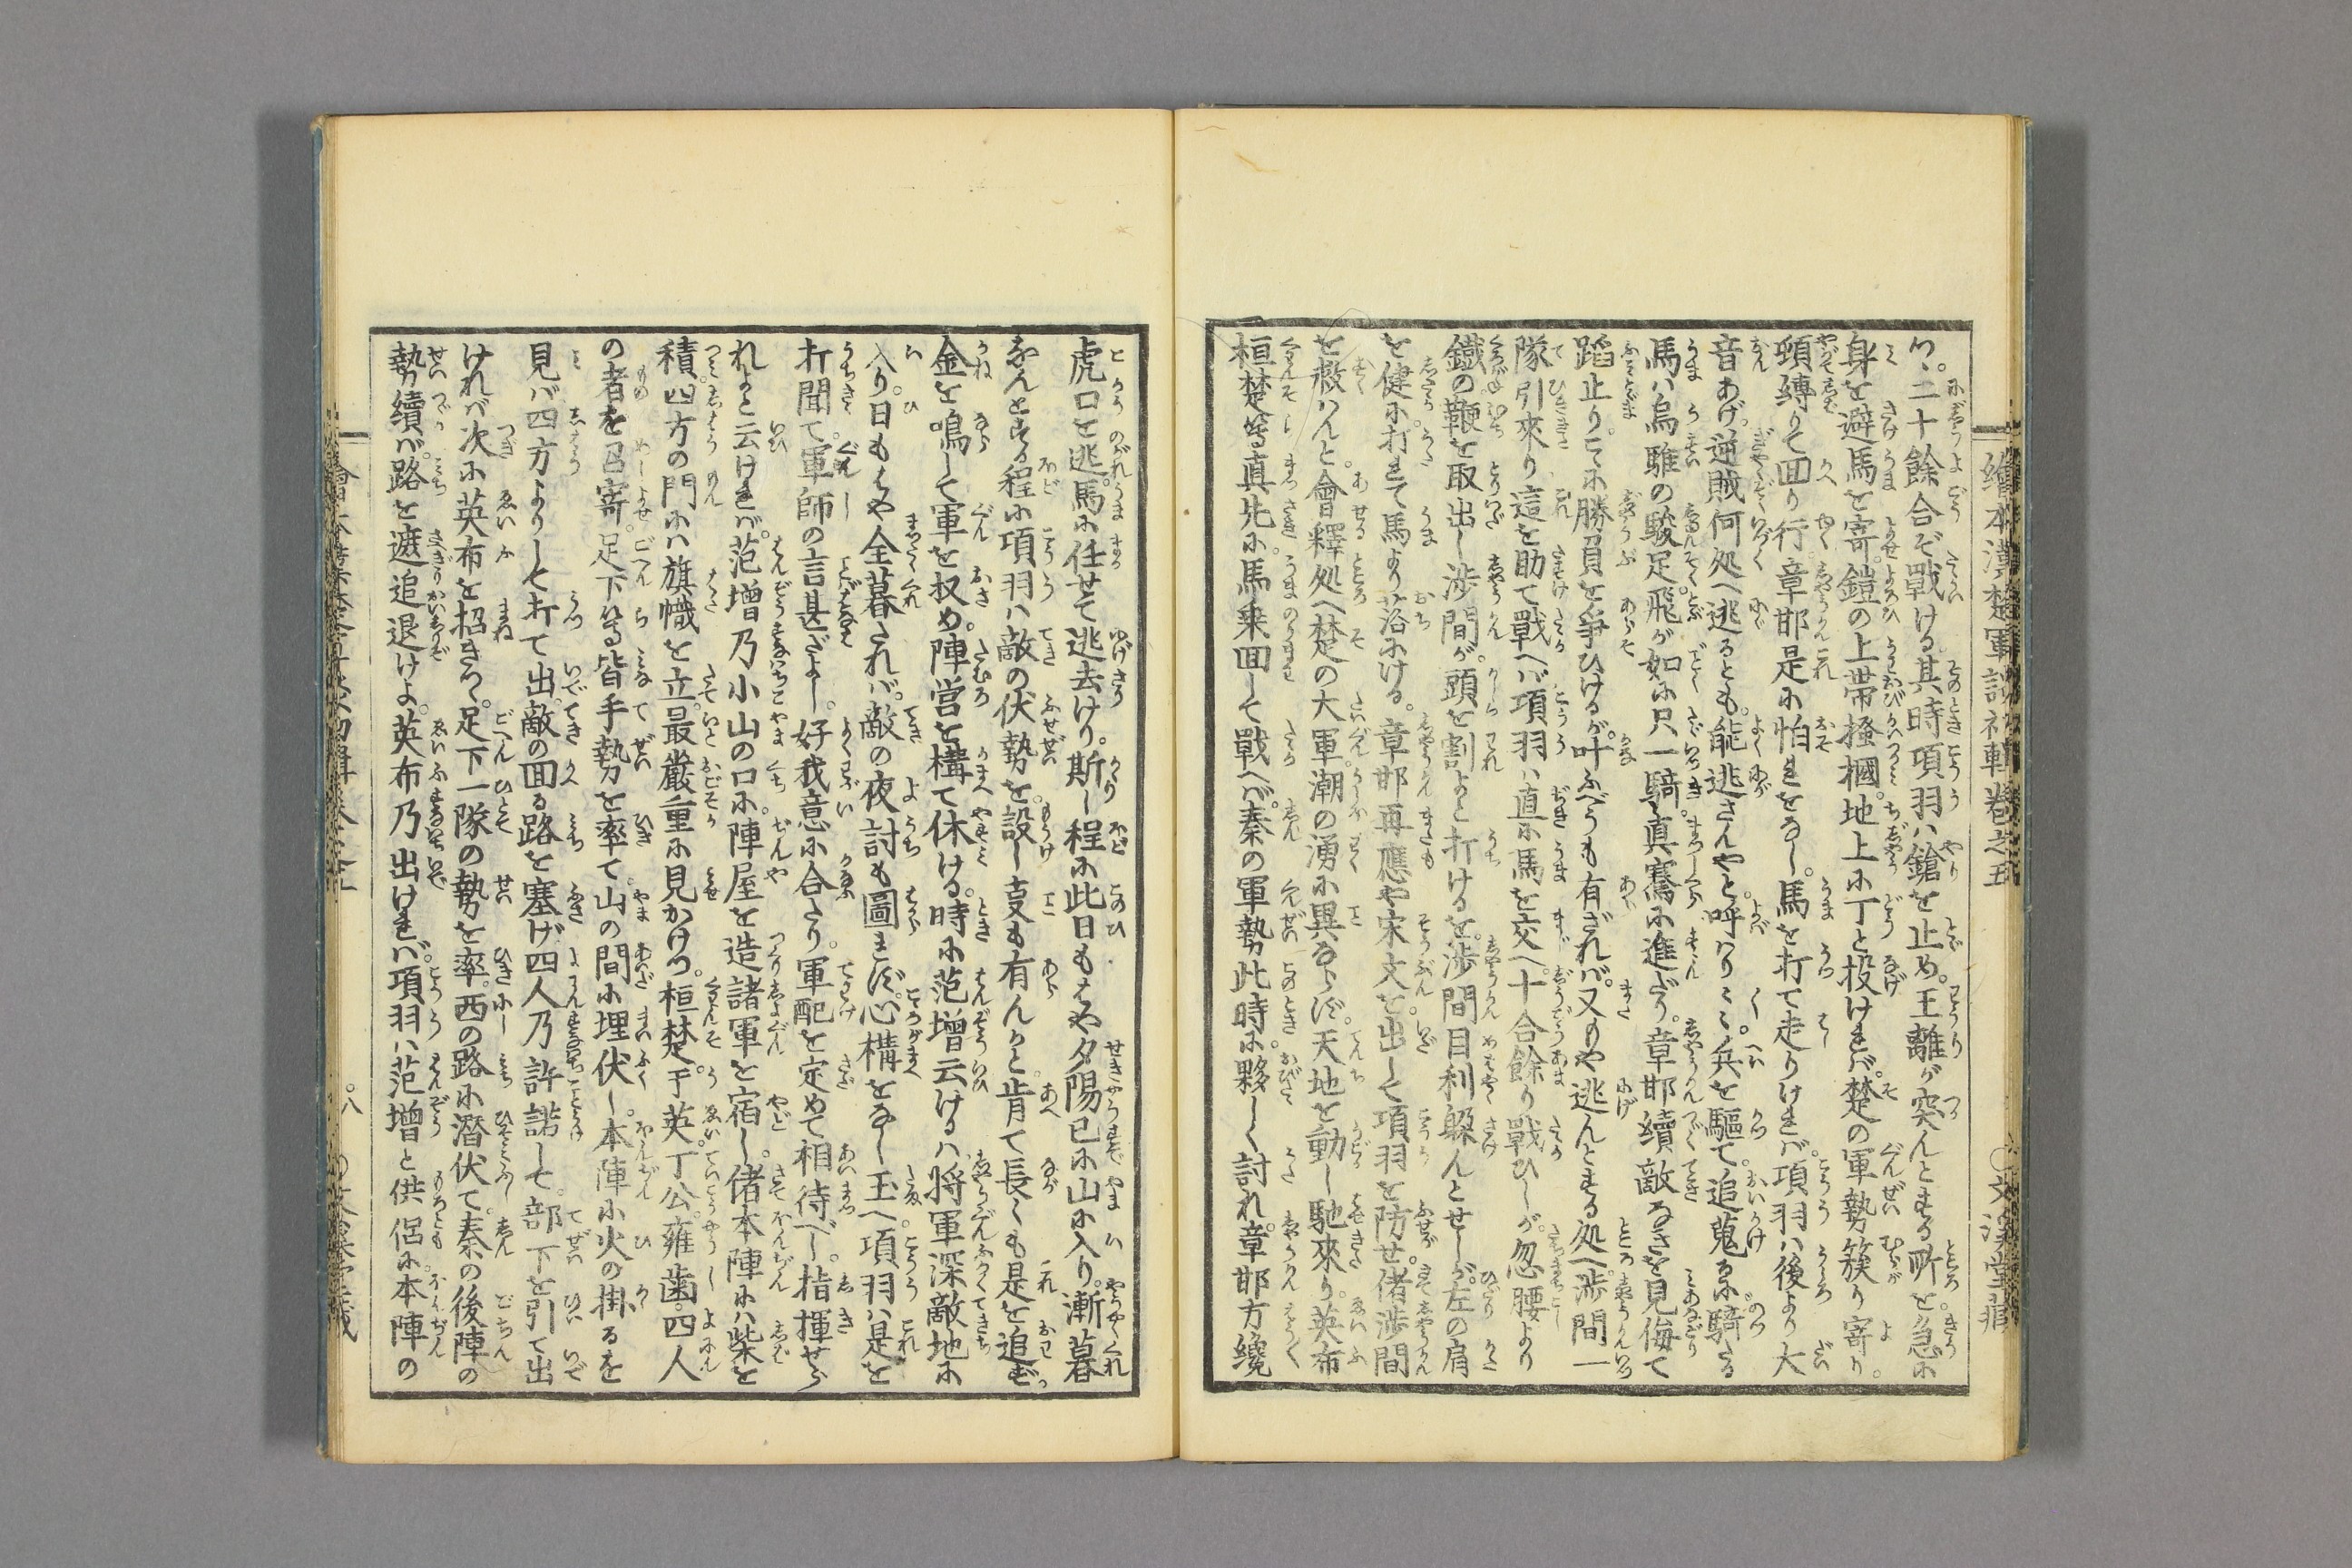 繪本漢楚軍談初輯卷之五
つ。二十餘合ぞ戰ける其時項羽ハ鎗を止め。王離が突んとする所を。急に
身を避馬を寄。鎧の上帯掻摑。地上に丁と投けれバ。楚の軍勢簇り寄り。
頓縛りて回り行。章邯是に怕れをなし。馬を打て走りけれバ。項羽ハ後より大
音あげ。逆賊何処へ逃るとも。能逃さんやと。呼ハり〳〵。兵を驅て。追蒐る。騎たる
馬ハ烏騅の駿足。飛が如に只一騎。真騫に進だり。章邯續敵なきを見侮て
蹈止り。こゝに勝負を爭ひけるが。叶ふべうも有ざれバ。又もや逃んとする処へ。渉間一
隊引來り這を助て戰へバ。項羽ハ直に馬を交へ。十合餘り戰ひしが。忽腰より
鐵の鞭を取出し。渉間が。頭を割よと打けるを。渉間目利躱んとせしが。左の肩
を健に打れて馬より落にける。章邯再應や宋文を。出して項羽を防せ。偖渉間
を救ハんと。會釋処へ楚の大軍。潮の湧に異ならず。天地を動し馳來り。英布
桓楚等真先に。馬乗回して戰へバ。秦の軍勢此時に。夥しく討れ。章邯方纔
虎口を逃。馬に任せて逃去けり。斯し程に此日もはや夕陽已に山に入り。漸暮
なんとする程に項羽ハ敵の伏勢を。設し叓も有んかと。肯て長くも是を追ず。
金を鳴して軍を収め。陣営を構て休ける。時に范增云けるハ。将軍深敵地に
入り。日もはや全暮たれバ。敵の夜討も圖れず。心構をなし玉へ。項羽ハ是を
打聞て。軍師の言甚ざよし。好我意に合たり。軍配を定めて相待べし。指揮せら
れよと云けれバ。范增乃小山の口に。陣屋を造諸軍を宿し。偖本陣にハ柴を
積。四方の門にハ旗幟を立。最嚴重に見かけつ。桓楚。于英。丁公。雍歯。四人
の者を召寄。足下等皆手勢を率て。山の間に埋伏し。本陣に火の掛るを
見バ四方よりして打て出。敵の回る路を塞げ。四人乃許諾して。部下を引て出
けれバ次に英布を招きつゝ。足下一隊の勢を率。西の路に潜伏て。秦の後陣の
勢續バ。路を遮追退けよ。英布乃出けれバ。項羽ハ范增と供侶に。本陣の
八